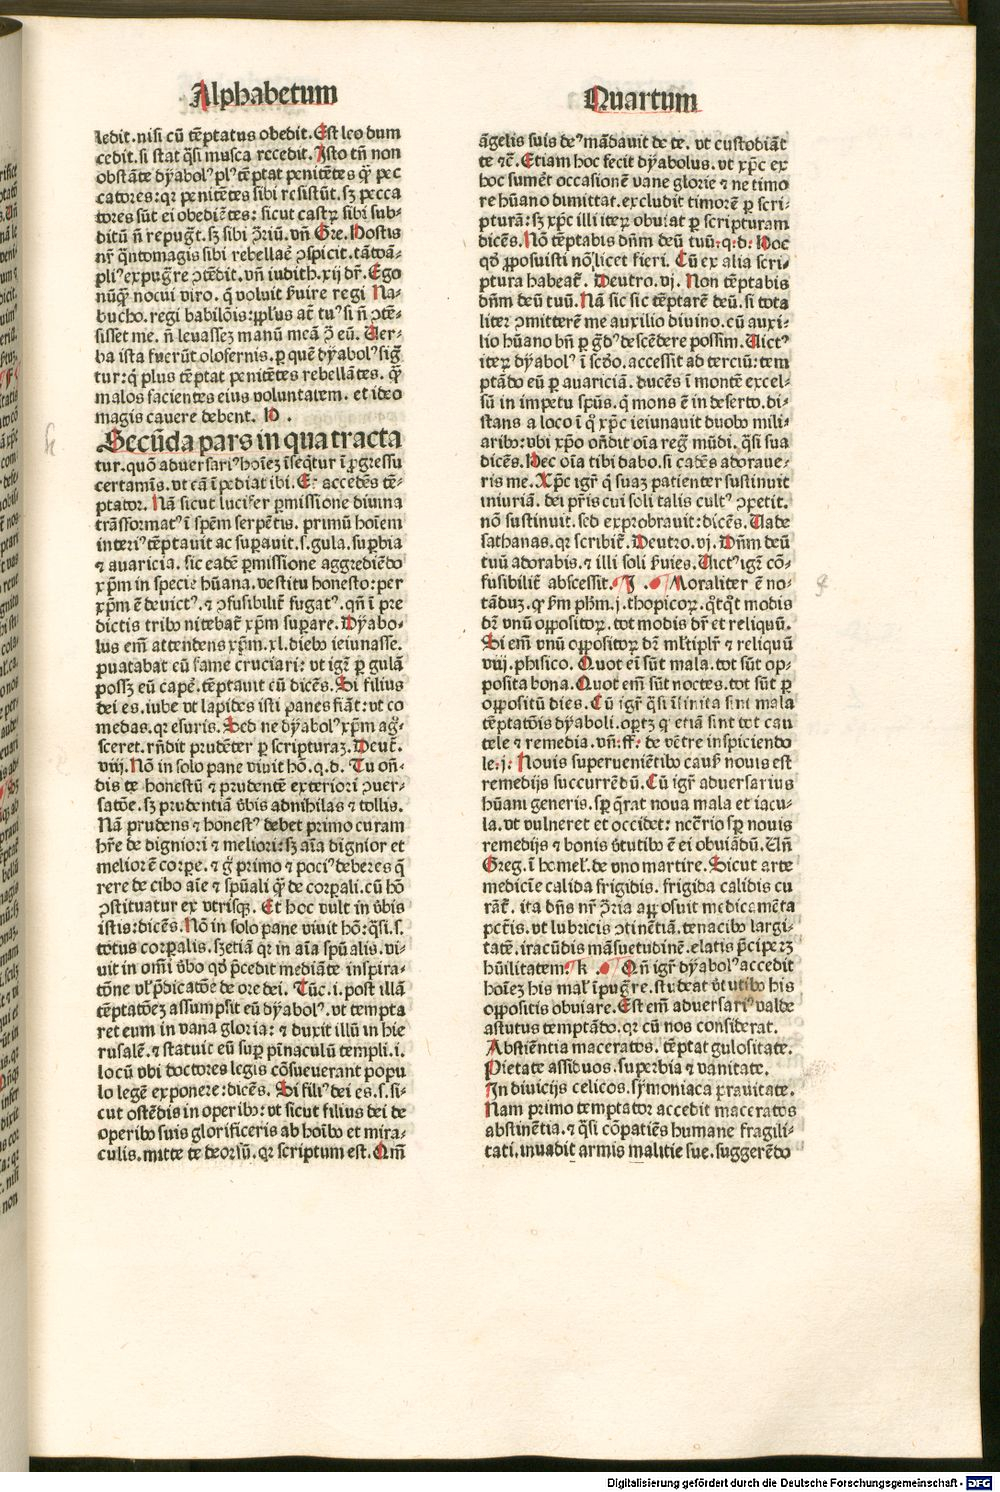 Alphabetum
ledit. nisi cū tēptatus obedit. Est leo dum
cedit. si stat q̄si musca recedit. Isto tñ non
obstāte dyabolꝰ plꝰ tēptat penitētes q̄ꝫ pec
catores: qꝛ penitētes sibi resistūt. sꝫ pecca
tores sūt ei obediētes: sicut castrꝫ sibi sub-
ditū ñ repugt̄. sꝫ sibi ꝯriū. vñ Gre. Hostis
nr̄ q̄ntomagis sibi rebellare ꝯspicit. tātoā-
pliꝰ expugnare ꝯtēdit. vñ iudith. xij dr̄. Ego
nūqꝫ nocui viro. q̄ voluit ẜuire regi Na-
bucho. regi babilōis: pplꝰus at̄ tuꝰ si ñ ꝯtē-
sisset me. ñ leuassez manū meā ꝯ eū. Uer-
ba ista fuerūt olofernis. ꝑ quē dyabolꝰ sig̅
tur: q̄ plus tēptat penitētes rebellātes. q̄ꝫ
malos facientes eius voluntatem. et ideo
magis cauere debent. H .
Secūda pars in qua tracta
tur. quō aduersariꝰ hoiez īseq̄tur ī ꝓgressu
certamīs. vt eā īpediat ibi. Et accedēs tē-
ptator. Nā sicut lucifer ꝑmissione diuina
trāsformatꝰ ī spēm serpētis. primū hoiem
interiꝰ tēptauit ac suꝑauit. s. gula. suꝑbia
⁊ auaricia. sic eadē ꝑmissione aggrediēdo
xp̄m in specie hūana. vestitu honesto: per
xp̄m ē deuictꝰ. ⁊ ꝯfusibilit̄ fugatꝰ. qñ ī pre
dictis tribꝰ nitebat̄ xp̄m suꝑare. Dyabo-
lus em̄ attendens xp̄m. xl. diebꝰ ieiunasse.
putabat eū fame cruciari: vt igr̄ ꝑ gulā
possꝫ eū caꝑe. tēptauit eū dicēs. Si filius
dei es. iube vt lapides isti panes fiāt: vt co
medas. qꝛ esuris. Sed ne dyabolꝰ xp̄m ag̅-
sceret. rñdit prudēter ꝑ scripturaꝫ. Deut̄.
viij. Nō in solo pane viuit hō. q. d. Tu oñ-
dis te honestū ⁊ prudentē exteriori ꝯuer-
satōe. sꝫ prudentiā v̄bis adnihilas ⁊ tollis.
Nā prudens ⁊ honestꝰ debet primo curam
hr̄e de digniori ⁊ meliori: sꝫ aīa dignior et
melior ē corꝑe. ⁊ g̊ primo ⁊ pociꝰ deberes q̄
rere de cibo aīe ⁊ spūali q̄ꝫ de corꝑali. cū hō
ꝯstituatur ex vtrisqꝫ. Et hoc vult in v̄bis
istis: dicēs. Nō in solo pane viuit hō: q̄si. s.
totus corꝑalis. sꝫ etiā qꝛ in aīa spūalis. vi-
uit in om̄i v̄bo qd̄ p̄cedit mediāte inspira-
tōne vl̓ p̄dicatōe de ore dei. Tūc. i. post illā
tēptatōez assumpsit eū dyabolꝰ. vt tempta
ret eum in vana gloria: ⁊ duxit illū in hie
rusalē. ⁊ statuit eū suꝑ pīnaculū templi. i.
locū vbi doctores legis cōsueuerant popu
lo legē exponere: dicēs. Si filiꝰ dei es. s. si-
cut ostēdis in operibꝰ: vt sicut filius dei de
operibꝰ suis glorificeris ab hoībꝰ et mira-
culis. mitte te deorsū. qꝛ scriptum est. Qm̄
Quartum
āgelis suis deꝰ mādauit de te. vt custodiāt
te ⁊c̄. Etiam hoc fecit dyabolus. vt xp̄c ex
hoc sumēt occasionē vane glorie ⁊ ne timo
re hūano dimittat. excludit timorē ꝑ scri-
pturā: sꝫ xp̄c illi iteꝝ obuiat ꝑ scripturam
dicēs. Nō tēptabis dn̄m deū tuū. q. d. Hoc
qd̄ ꝓposuisti nō licet fieri. Cū ex alia scri-
ptura habeat̄. Deutro. vj. Non tēptabis
dn̄m deū tuū. Nā sic sic tēptarē deū. si tota
liter ꝯmitterē me auxilio diuino. cū auxi-
lio hūano bñ ꝑ g̅dꝰ descēdere possim. Uictꝰ
iteꝝ dyabolꝰ ī scd̄o. accessit ad terciū: tem
ptādo eū ꝑ auariciā. ducēs ī montē excel-
sū in impetu spūs. q̄ mons ē in deserto. di-
stans a loco ī q̄ xp̄c ieiunauit duobꝰ mili-
aribꝰ: vbi xp̄o oñdit oīa reg̅ mūdi. q̄si sua
dicēs. Hec oīa tibi dabo. si cadēs adoraue-
ris me. Xp̄c igr̄ q̄ suaꝫ patienter sustinuit
iniuriā. dei pr̄is cui soli talis cultꝰ ꝯpetit.
nō sustinuit. sed exprobrauit: dicēs. Uade
sathanas. qꝛ scribit̄. Deutro. vj. Dn̄m deū
tuū adorabis. ⁊ illi soli ẜuies. Uictꝰ igr̄ cō-
fusibilit̄ abscessit. J . Moraliter ē no-
tāduꝫ. ꝙ ẜm ph̄m. j. thopicoꝝ. q̊tq̊t modis
dr̄ vnū oppositoꝝ. tot modis dr̄ et reliquū.
Si em̄ vnū oppositoꝝ dr̄ ml̓tiplr̄ ⁊ reliquū
viij. phisico. Quot em̄ sūt mala. tot sūt op-
posita bona. Quot em̄ sūt noctes. tot sūt ꝑ
oppositū dies. Cū igr̄ q̄si īfinita sint mala
tēptatōis dyaboli. oꝑtꝫ ꝙ etiā sint tot cau
tele ⁊ remedia. vñ. ff. de vētre inspiciendo
le. j. Nouis superuenietibꝰ causꝭ nouis est
remedijs succurrēdū. Cū igr̄ aduersarius
hūani generis. sꝑ q̄rat noua mala et iacu-
la. vt vulneret et occidet: ncc̄rio sꝑ nouis
remedijs ⁊ bonis v̄tutibꝰ ē ei obuiādū. Uñ
Greg. ī homel̓. de vno martire. Sicut arte
medicīe calida frigidis. frigida calidis cu
rāt̄. ita dn̄s nr̄ ꝯria apposuit medicamēta
pctīs. vt lubricis ꝯtinētiā. tenacibꝰ largi-
tatē. iracūdis māsuetudinē. elatis p̄ciperꝫ
hūilitatem. k . Qñ igr̄ dyabolꝰ accedit
hoiez his mal̓ īpugr̄e. studeat vt utibꝰ his
oppositis obuiare. Est em̄ aduersariꝰ valde
astutus temptādo. qꝛ cū nos considerat.
Abstiētia maceratos. tēptat gulositate.
Pietate assiduos. superbia ⁊ vanitate.
In diuicijs celicos. symoniaca prauitate.
Nam primo temptator accedit maceratos
abstinētia. ⁊ q̄si cōpatiēs humane fragili-
tati. inuadit armis malitie sue. suggerēdo
Digitalisierung gefördert durch die Deutsche Forschungsgemeinschaft - DFG